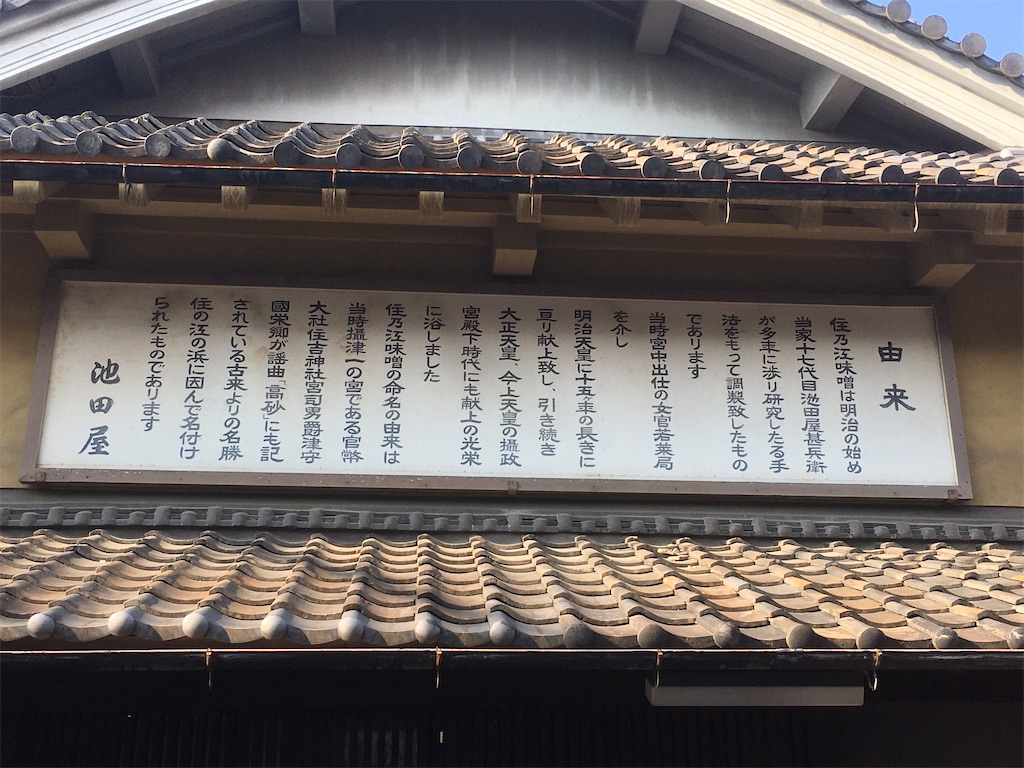 由来
住乃江味噌は明治の始め
当家十七代目池田屋甚兵衛
が多年に渉り研究したる手
法をもって調製致したもの
であります
当時宮中出仕の女官若菜局
を介し
明治天皇に十五年の長きに
亘り献上致し、引き続き
大正天皇、今上天皇の攝政
宮殿下時代にも献上の光栄
に浴しました
住乃江味噌の命名の由来は
当時攝津一の宮である官幣
大社住吉神社宮司男爵津守
國栄卿が謡曲「高砂」にも記
されている古来よりの名勝
住の江の浜に因んで名付け
られたものであります
池田屋